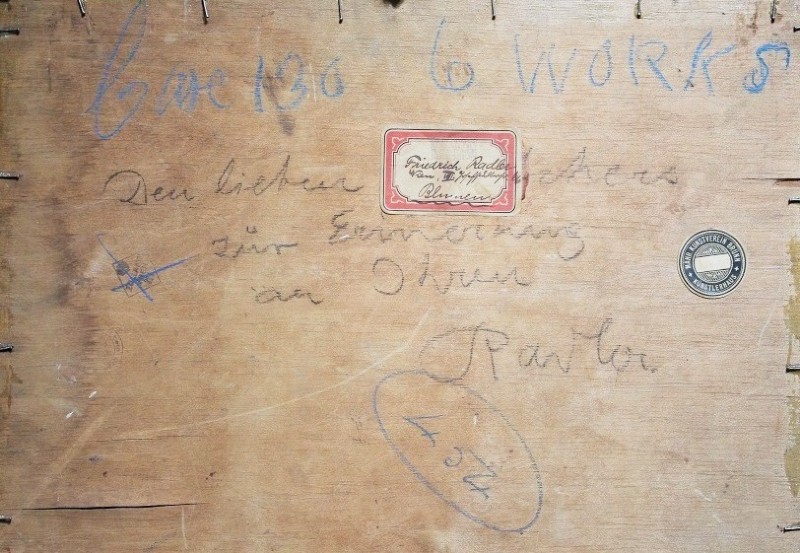 Case 130 6 WORKS
Friedrich Radler
Wien, VII.
Blumen
Den lieben
zur Erinnerung
an Ihren
Radler
MÄHR. KUNSTVEREIN BRÜNN
KÜNSTLERHAUS